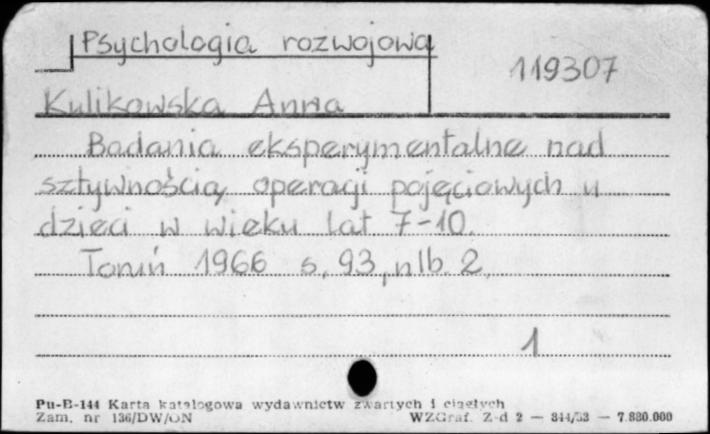 Psychologia rozwojowa
119307
Kulikowska Anna
Badania eksperymentalne nad
sztywnością operacji pojęciowych u
dzieci w wieku lat 7-10.
Toruń 1966 s. 93, nlb. 2
1
Pu-B-144 Karta katalogowa wydawnictw zwartych i ciągłych
Zam. nr 136/DW/ON WZGraf. Z-d 2 — 844/53 — 7.880.000